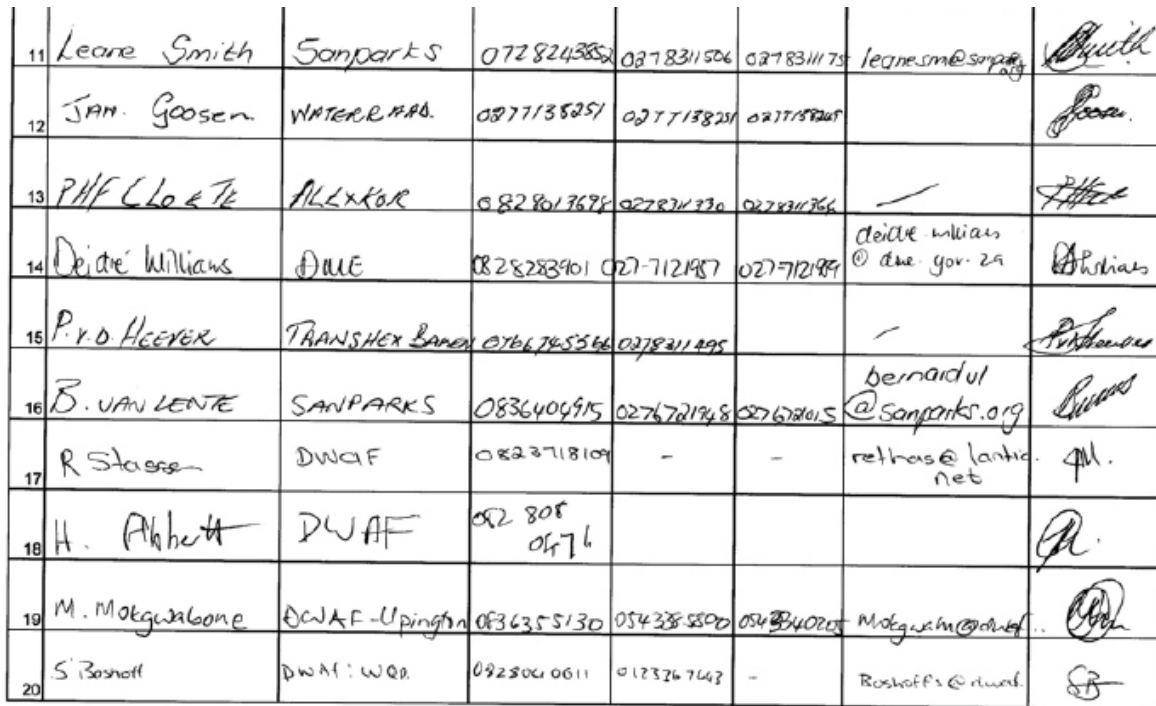 11 Leane Smith Sanparks 0728243852 0278311506 0278311175 leanesm@sanparks.org Smith
12 JAN. Goosen WATERRAAD. 0277138251 0277138251 0277138265 Goosen.
13 PHF CLOETE ALEXKOR 0828013698 0278311330 0278311364 —
14 Deidré Williams DME 0828283901 027-7121987 027-7121989 deidre.williams
@ dme.gov.za
15 P.V.D. HEEVER TRANSHEX 0766745566 0278311495 —
16 B. VAN LENTE SANPARKS 0836404915 0276721948 0276721015 bernardvl
@sanparks.org
17 R Stassen DWAF 0823718109 - - rethas@lantic.
net
18 H. Abbott DWAF 082 808
0474
19 M. Mokgwabone DWAF-Upington 0836355130 0543385800 0543340205 Mokgwam@dwaf..
20 S Boshoff DWAF: WQP. 0828040011 0123367443 - Boshoffs@dwaf. SB